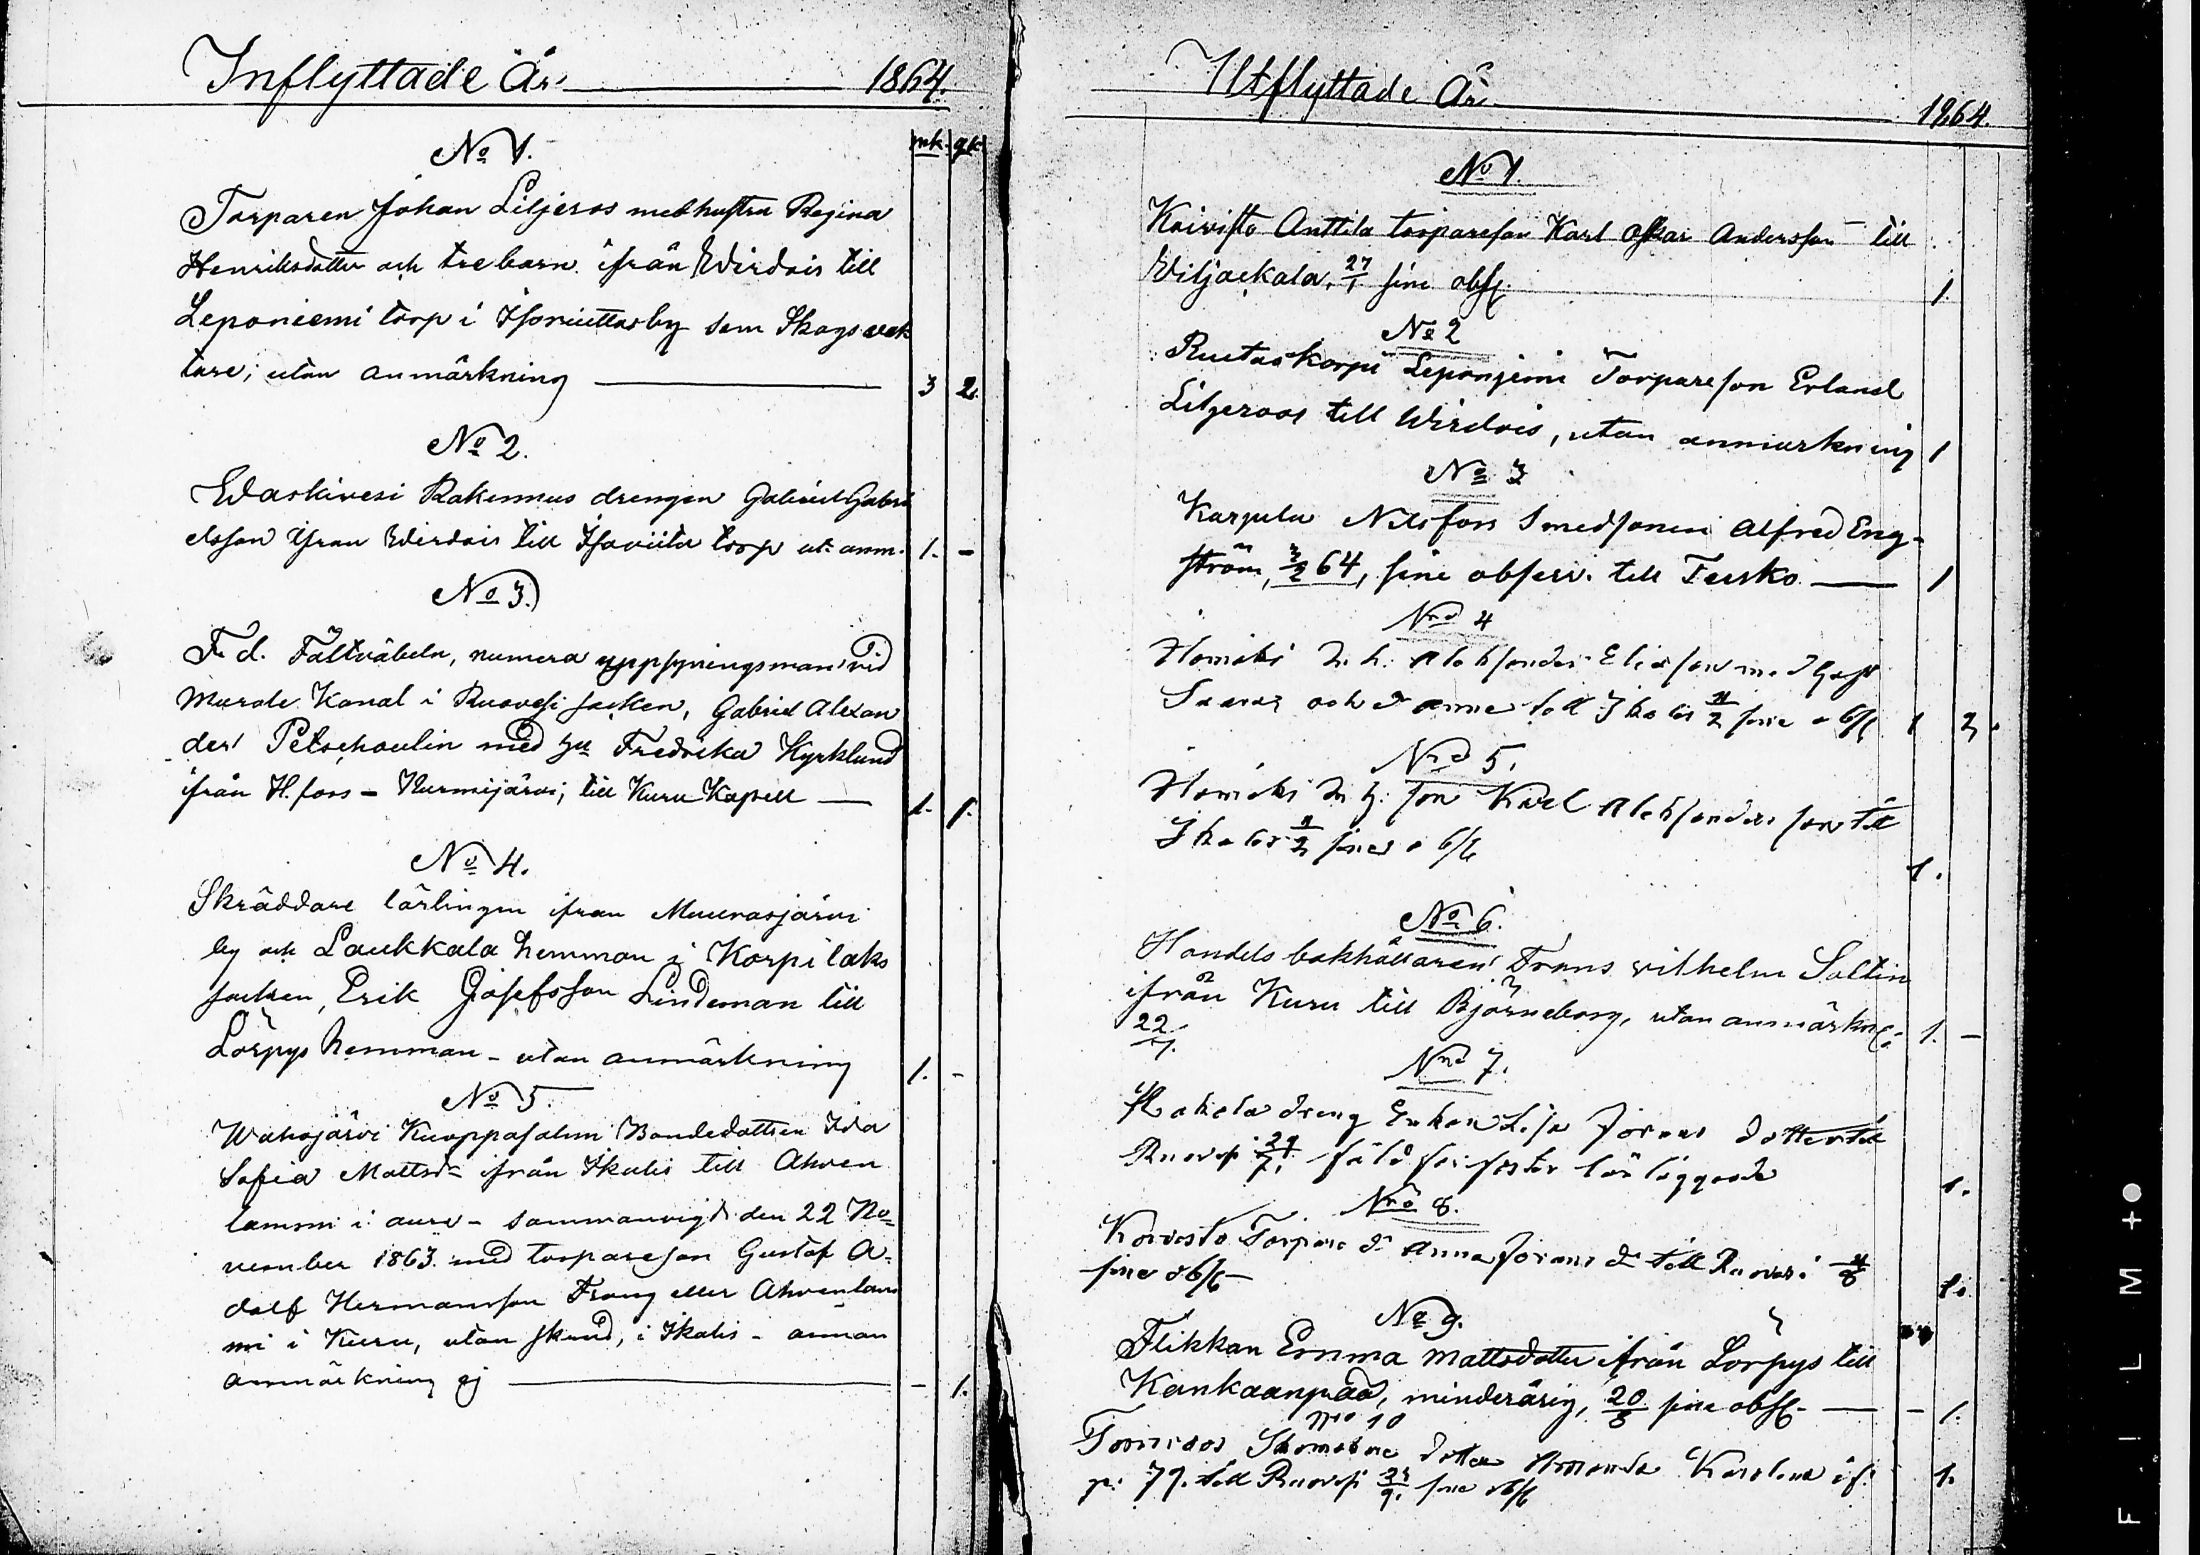 Inflyttade År 1864.
mk. qk.
No 1.
Torparen Johan Liljeros med hustra Regina
Henriksdotter och tre barn ifrån Wirdois till
Leponiemi torp i Itoniittasby som Skogs vak
tare; utan anmärkning 3 2.
No 2.
Waskivesi Rakennus drengen Gabriel Gabri
elsson ifran Wirdois till Isoviita torp ut: anm. 1. -
No 3.
F. d. Fältväbeln, numera uppsyningsman vid
Murole Kanal i Ruovesi socken, Gabriel Alexan
der Petschoulin med hu Fredrika Kyrklund
ifrån H.fors - Nurmijärvi, till Kuru Kapell 1. 1.
No 4.
Skräddare lärlingen ifran Muurasjärvi
by och Laukkala hemman i Korpilaks
socken, Erik Josefsson Lindeman till
Lörpys hemman - utan anmärkning 1. -
No 5.
Wahojärvi Kuoppasalmi Bondedottren Ida
Sofia Mattsd: ifrån Ikalis till Ahven
lammi i aure - sammanvigd den 22 No=
vember 1863. med torpareson Gustaf A=
dolf Hermansson Frang eller Ahvenlam
mi i Kuru, utan skund, i Ikalis - annan
anmärkning ej - 1.
Utflyttade År 1864.
No 1.
Koivisto Anttila torpareson Karl Oskar Andersson till
Viljackala, 27/1 sine obs. 1.
No 2
Ruutaskorpi Leponjemi Torpareson Erland
Liljeroos till Wirdois, utan anmarkning 1
No 3
Karpula Nilsfors Smedsonen Alfred Eng-
ström, 3/2 64, sine observ. till Teisko 1
Nro 4
Hornoki Alehsander Eliasson med hust
Saara och d Anna till Ikalis 11/2 sine obs 1 2.
Nro 5.
Hornoki son Karl Alehsandersson till
Ikalis 11/2 sine obs 1.
No 6.
Handels bokhållaren Frans vilhelm Saltin
ifrån Kuru till Björneborg, utan anmärkn: 1. -
22/7.
Nro 7.
dreng Enkan Lisa Jorans dotter till
Ruovesi 29/7. 1.
Nro 8.
Koivisto Torpare d: Anna Jorans d: till Ruovesi 4/8
sine obs 1.
No 9.
Flikkan Emma Mattsdotter ifrån Lörpys till
Kankaanpää, minderårig, 20/8 sine obs. - 1.
Nro 10
dotter Amanda Karolina if.
p. 79. till Ruovesi 24/9. sine obs 1.
FILM